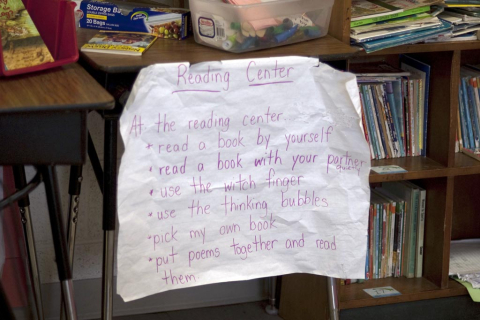 Storage Bags
20 Bags
Reading Center
At the reading center
• read a book by yourself
• read a book with your partner
• use the witch finger
• use the thinking bubbles
• pick my own book
• put poems together and read
them.